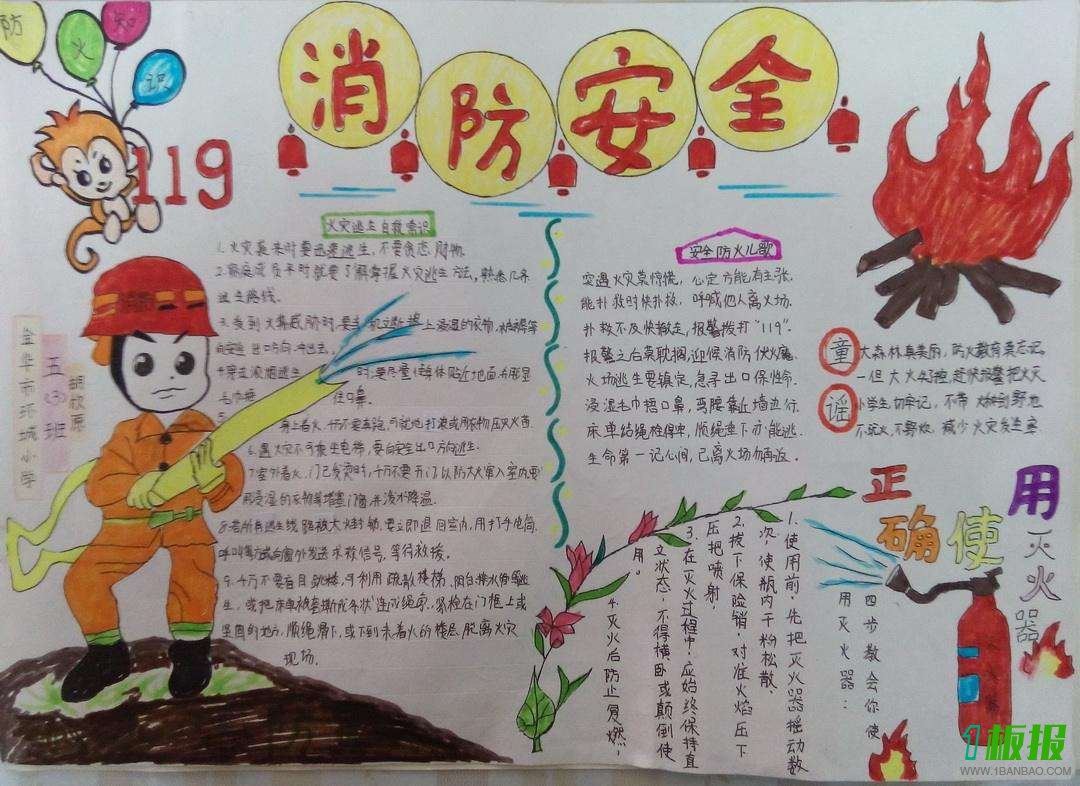 防火知识
119
消防安全
火灾逃生自救常识
1.火灾袭来时要迅速逃生,不要贪恋财物.
2.家庭成员平时就要了解掌握火灾逃生方法,熟悉几条
逃生路线.
3.受到火势威胁时,要当机立断披上浸湿的衣物、被褥等
向安全出口方向冲出去.
4.穿过浓烟逃生时,要尽量使身体贴近地面,
毛巾捂住口鼻.
身上着火,千万不要奔跑,可就地打滚或用衣物压灭火苗.
6.遇火灾不可乘坐电梯,要向安全出口方向逃生.
7.室外着火,门已发烫时,千万不要开门,以防大火窜入室内,要
用浸湿的衣物等堵塞门窗,并泼水降温.
8.若所有逃生线路被大火封锁,要立即退回室内,用打手电筒、
呼叫等方式向窗外发送求救信号,等待救援.
9.千万不要盲目跳楼,可利用疏散楼梯、阳台、排水管等逃
生,或把床单被套撕成条状连成绳索,紧拴在门框上或
坚固的地方,顺绳滑下,或下到未着火的楼层,脱离火灾
现场.
金华市环城小学
五(3)班
胡欣原
安全防火儿歌
突遇火灾莫惊慌,心定方能有主张.
能扑救时快扑救,呼喊他人离火场.
扑救不及快撤走,报警拨打"119".
报警之后莫耽搁,迎候消防伏火魔.
火场逃生要镇定,急寻出口保性命.
浸湿毛巾捂口鼻,弯腰靠近墙边行.
床单结绳拴得牢,顺绳垂下亦能逃.
生命第一记心间,已离火场勿再返.
童谣
大森林真美丽,防火教育莫忘记.
一但大火,赶快报警把火灭
小学生切牢记,不带火种到野地
不玩火,不野炊,减少火灾发生率
正确使用灭火器
四步教会你使
用灭火器:
1.使用前,先把灭火器摇动数
次,使瓶内干粉松散.
2.拔下保险销,对准火焰压下
压把喷射.
3.在灭火过程中,应始终保持直
立状态,不得横卧或颠倒使
用。
4.灭火后防止复燃.
1板报
WWW.1BANBAO.COM